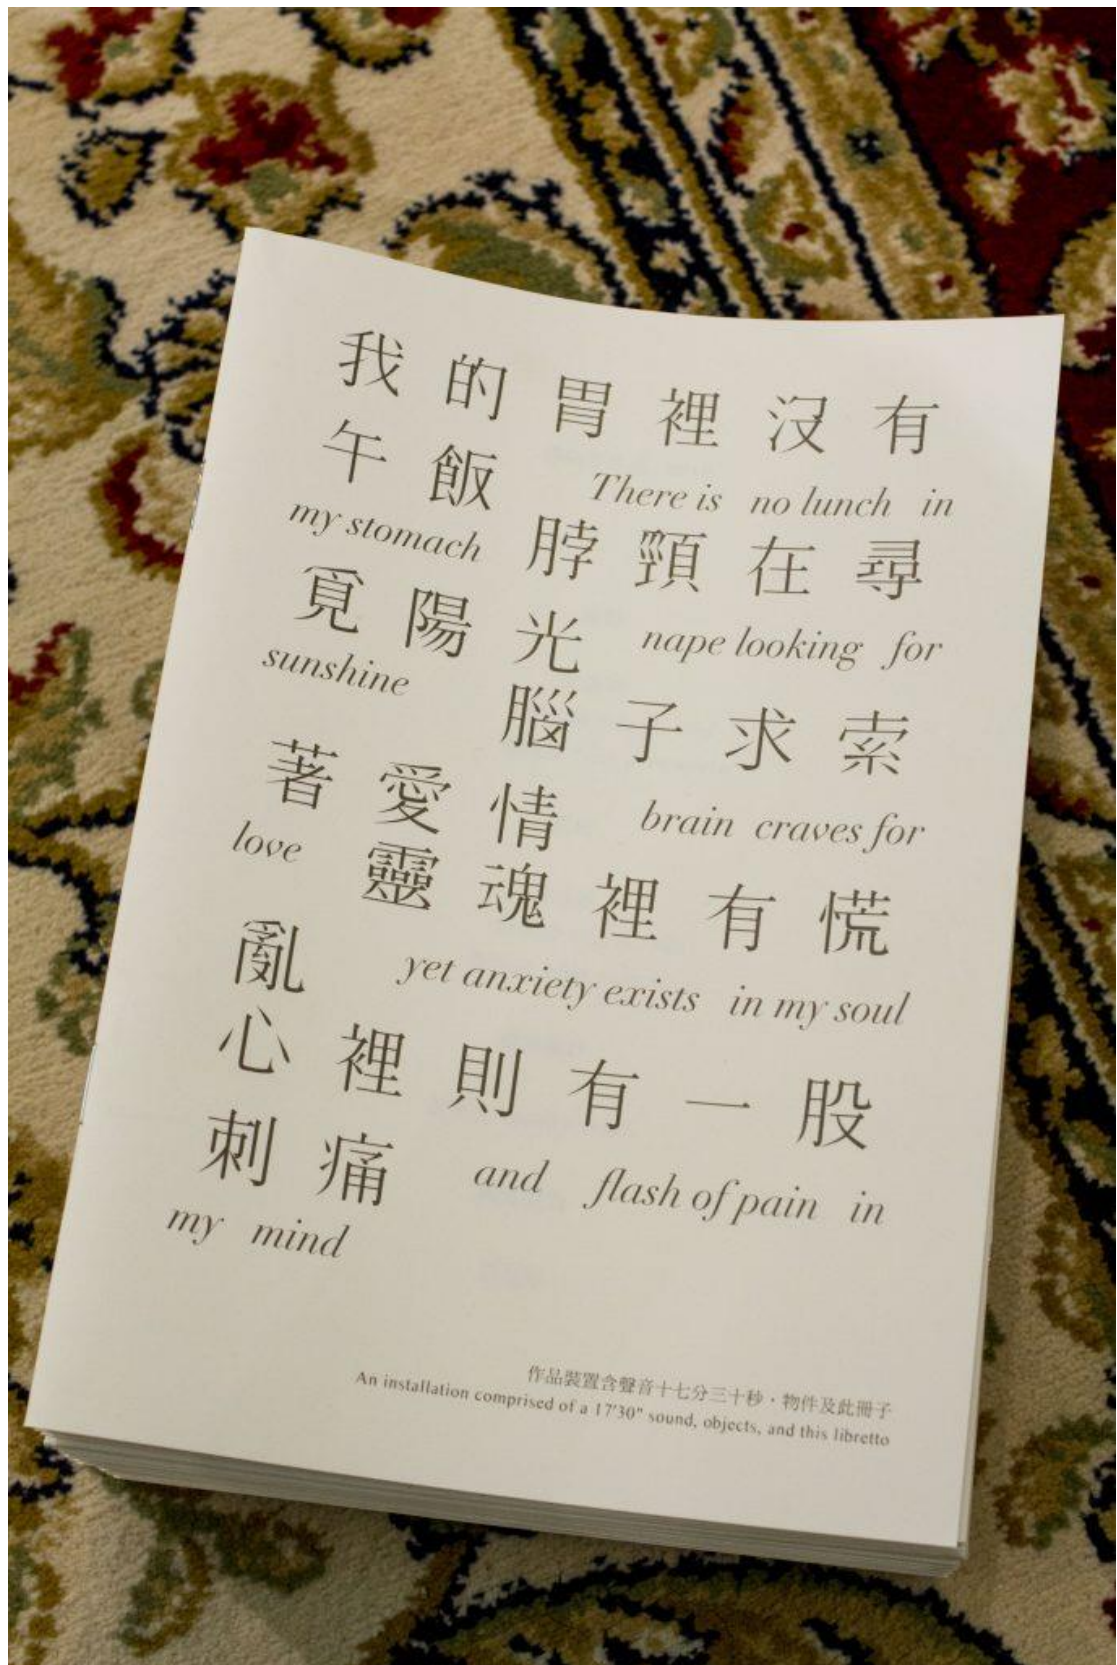 我的胃裡沒有
午飯 There is no lunch in
my stomach 脖頸在尋
覓陽光 nape looking for
sunshine 腦子求索
著愛情 brain craves for
love 靈魂裡有慌
亂 yet anxiety exists in my soul
心裡則有一股
刺痛 and flash of pain in
my mind
作品裝置含聲音十七分三十秒，物件及此冊子
An installation comprised of a 17'30" sound, objects, and this libretto